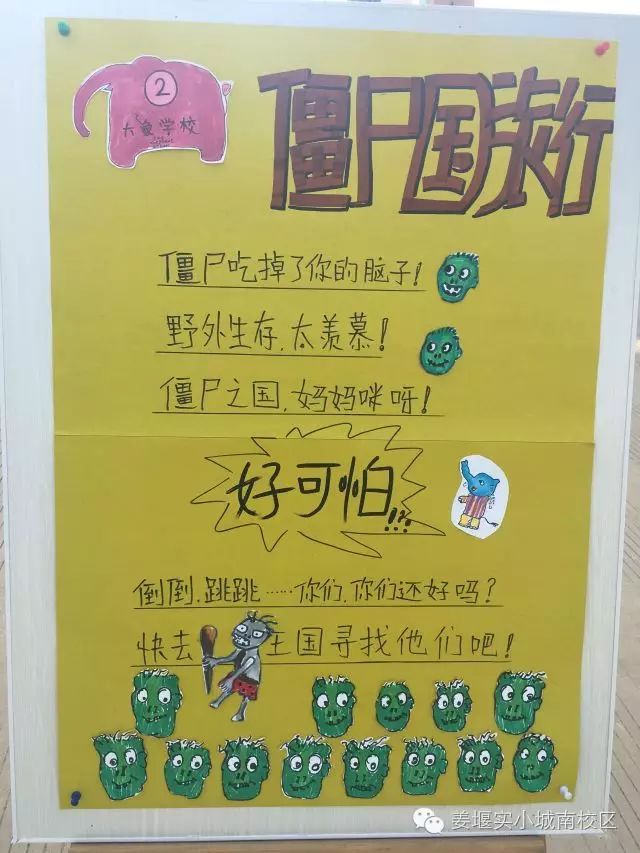 ②
大象学校
僵尸国旅行
僵尸吃掉了你的脑子!
野外生存,太羡慕!
僵尸之国,妈妈咪呀!
好可怕!!?!
倒倒,跳跳……你们,你们还好吗?
快去 王国寻找他们吧!
姜堰实小城南校区